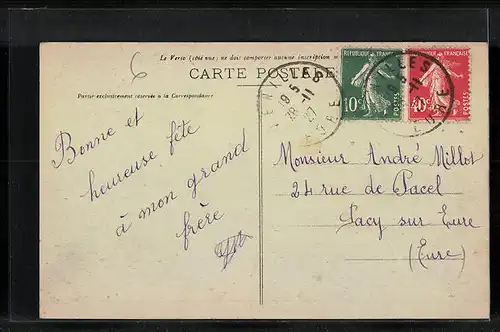 Le Verso (côté vue) ne doit comporter aucune inscription
CARTE POSTALE
Partie exclusivement réservée à la Correspondance
6
RÉPUBLIQUE FRANÇAISE
10c
FRANÇAISE
40c
19 5
28-11
27
EURE
Bonne et
heureuse fête
à mon grand
frère
Monsieur André Millot
24 rue de Pacel
Pacy sur Eure
(Eure)